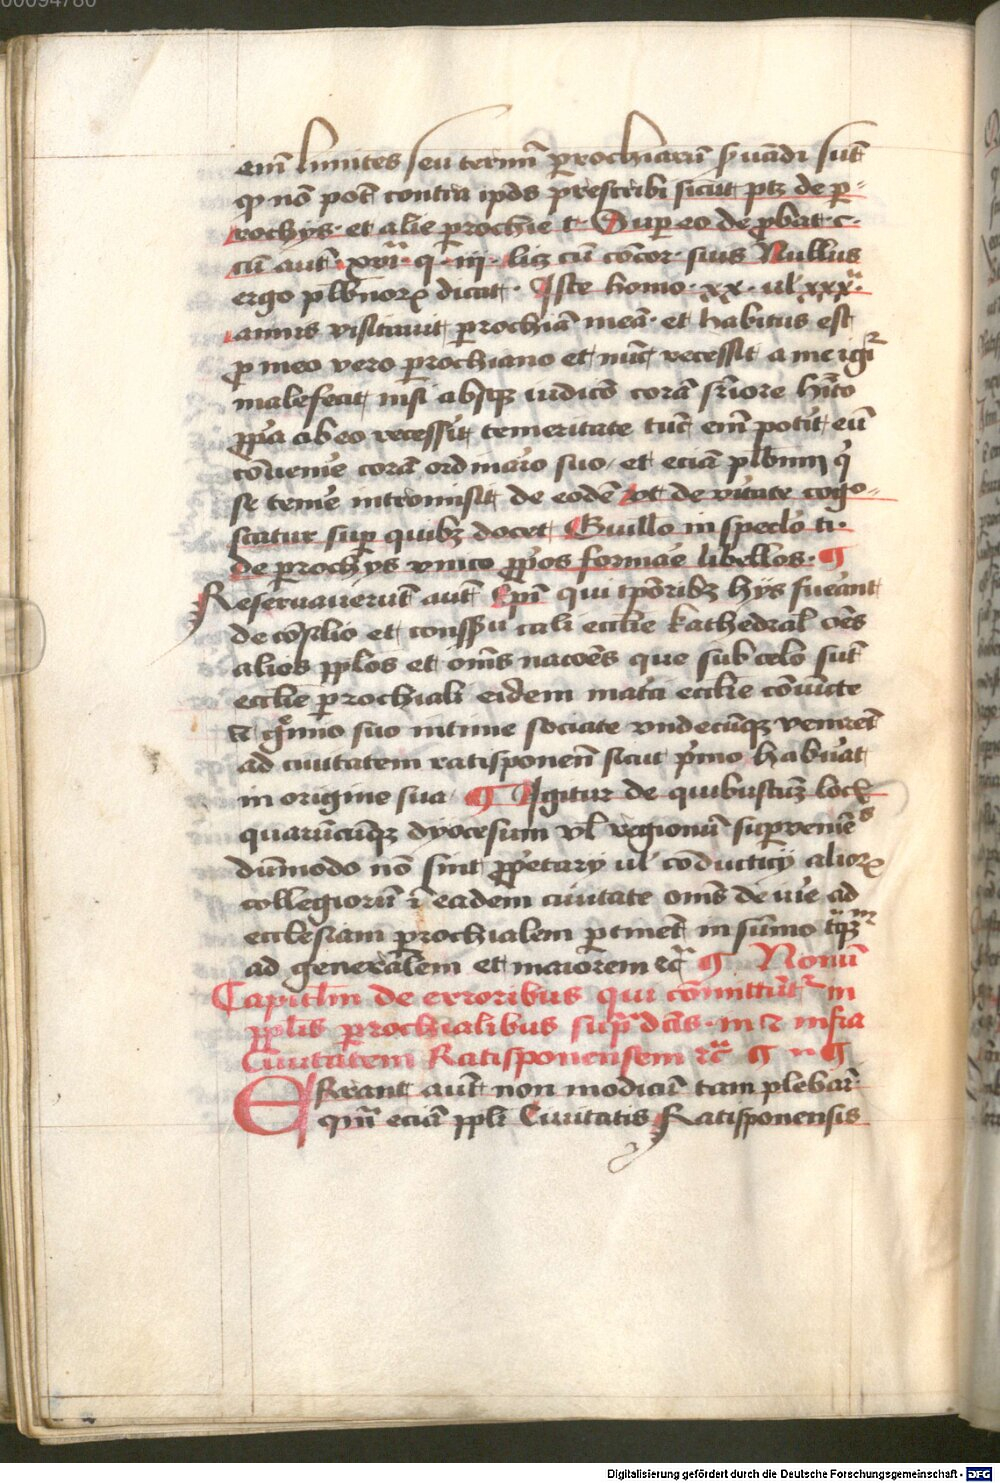 00094780
em̄ limites seu termī ꝑrochiarū ẜuādi sūt
qꝫ nō pōt contra ip̄os p̄rescribi sicut ptꝫ de ꝑ-
rochijs · et alie ꝑrochie t · Super eo de ꝓbat · c ·
cū aut · xvi · q · iii · licꝫ cū cōcor · suis Nullus
ergo pl̄bnorꝝ dicat · Iste homo · xx · ul xxx ·
annis visitauit ꝑrochiā meā · et habitus est
ꝓ meo vero ꝑrochiano et nūc recessit a me igr̄
malefecit nisi absqꝫ iudicō corā suꝑiore hīto
ꝓpia ab eo recessit temeritate tūc em̄ potit eū
cōuenire corā ordinario suo et eciā plbnm qͥ
se temē intromisit de eodē ut de uitate cogo-
scatur suꝑ quibꝫ docet Guillo in specl̄o ti ·
de ꝑrochijs vnico ꝓpios formāe libellos · ¶
Reseruauerūt aūt Ep̄i qui tꝑoribꝫ hijs fuerant
de cōsilio et consēsu cꝑli eccl̄ie kathedral̄ oēs
alios ppl̄os et om̄s nacōes que sub celo sūt
eccl̄ie ꝑrochiali eidem matri eccl̄ie cōuicte
et gͤmio suo intime sociate vndecūqꝫ venirēt
ad ciuitatem ratisponen̄ sicut p̄mo habuāt
in origine sua ¶ Agitur de quibuscūqꝫ locis
quarūcūqꝫ dyocesum vl̄ regionū suꝑueniēs
dūmodo nō sint ꝓpietarij ul̄ cōducticij aliorꝝ
collegiorū ī eadem ciuitate om̄s de iure ad
ecclesiam ꝑrochialem ꝑtinēt in sūmo tqꝫ
ad generalem et maiorem ꝛc̄ ¶ Nonū
Capitl̄m de erroribus qui cōmittūtᷣ in
ppl̄is ꝑrochialibus supᵃdc̄is · in ⁊ infra
Ciuitatem Ratisponensem ꝛc̄ ¶ ¶
Errant aūt non modicū tam plebani
qm̄ eciā ppl̄i Ciuitatis Ratisponensis
Digitalisierung gefördert durch die Deutsche Forschungsgemeinschaft - DFG